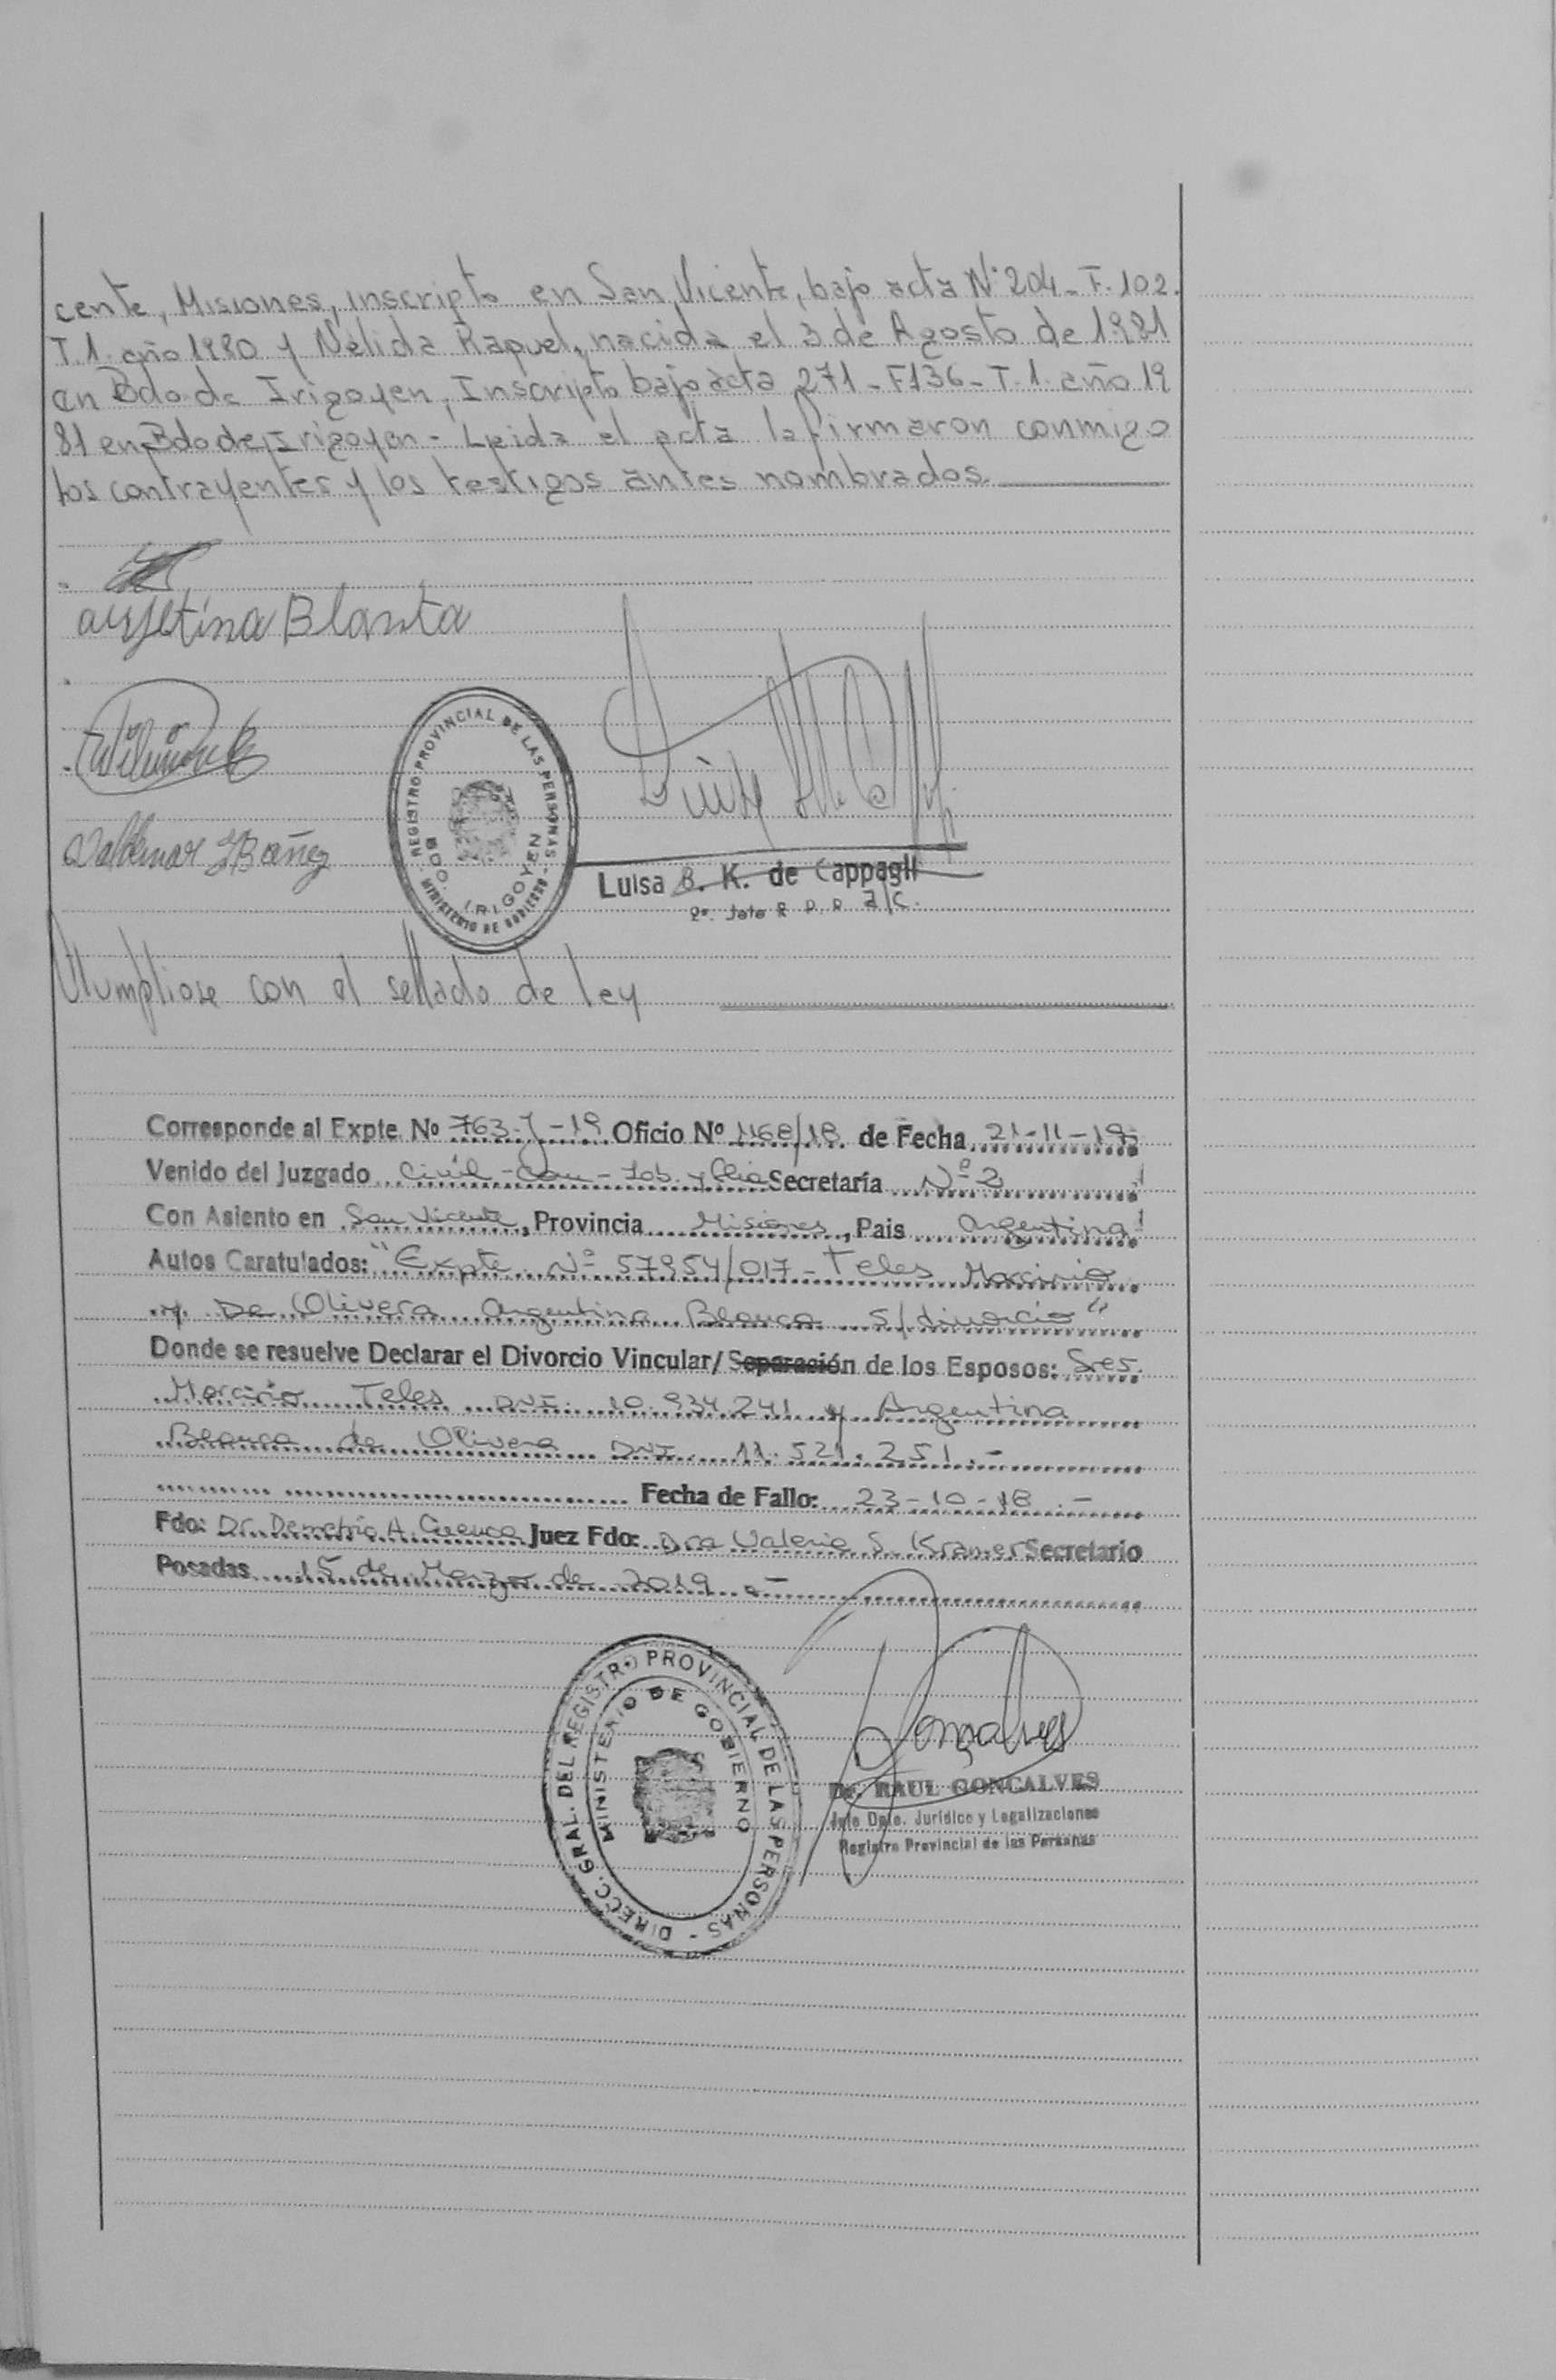 cente, Misiones, inscripto en San Vicente, bajo acta N° 204 - F. 102.
T. 1. año 1980 y Nelida Raquel, nacida el 3 de Agosto de 1981
en Bdo. de Irigoyen, Inscripto bajo acta 271 - F136 - T. 1. año 19
81 en Bdo de Irigoyen - Leida el acta la firmaron conmigo
los contrayentes y los testigos antes nombrados.
Valdemar Ibañez
REGISTRO PROVINCIAL DE LAS PERSONAS
BDO. IRIGOYEN
MINISTERIO DE GOBIERNO
Luisa B. K. de Cappagli
a/c.
Cumpliose con el sellado de ley
Corresponde al Expte. Nº 763-J-19 Oficio Nº 1168/18 de Fecha 21-11-19
Venido del Juzgado Civil - Com - Lab. y Flia Secretaría Nº 2
Con Asiento en San Vicente, Provincia Misiones, Pais Argentina
Autos Caratulados: "Expte Nº 57954/017 - Teles Marcirio
y De Olivera Argentina Blanca S/divorcio"
Donde se resuelve Declarar el Divorcio Vincular/Separación de los Esposos: Sres.
Marcirio Teles DNI 10.934.241 y Argentina
Blanca de Olivera DNI 11.521.251.-
Fecha de Fallo: 23-10-18.-
Fdo: Dr. Demetrio A. Cuenca Juez Fdo: Dra Valeria S. Kramer Secretario
Posadas 15 de Marzo de 2019.-
DIRECC. GRAL. DEL REGISTRO PROVINCIAL DE LAS PERSONAS -
MINISTERIO DE GOBIERNO
Gonçalves
Dr. RAUL GONCALVES
Jefe Dpto. Jurídico y Legalizaciones
Registro Provincial de las Personas